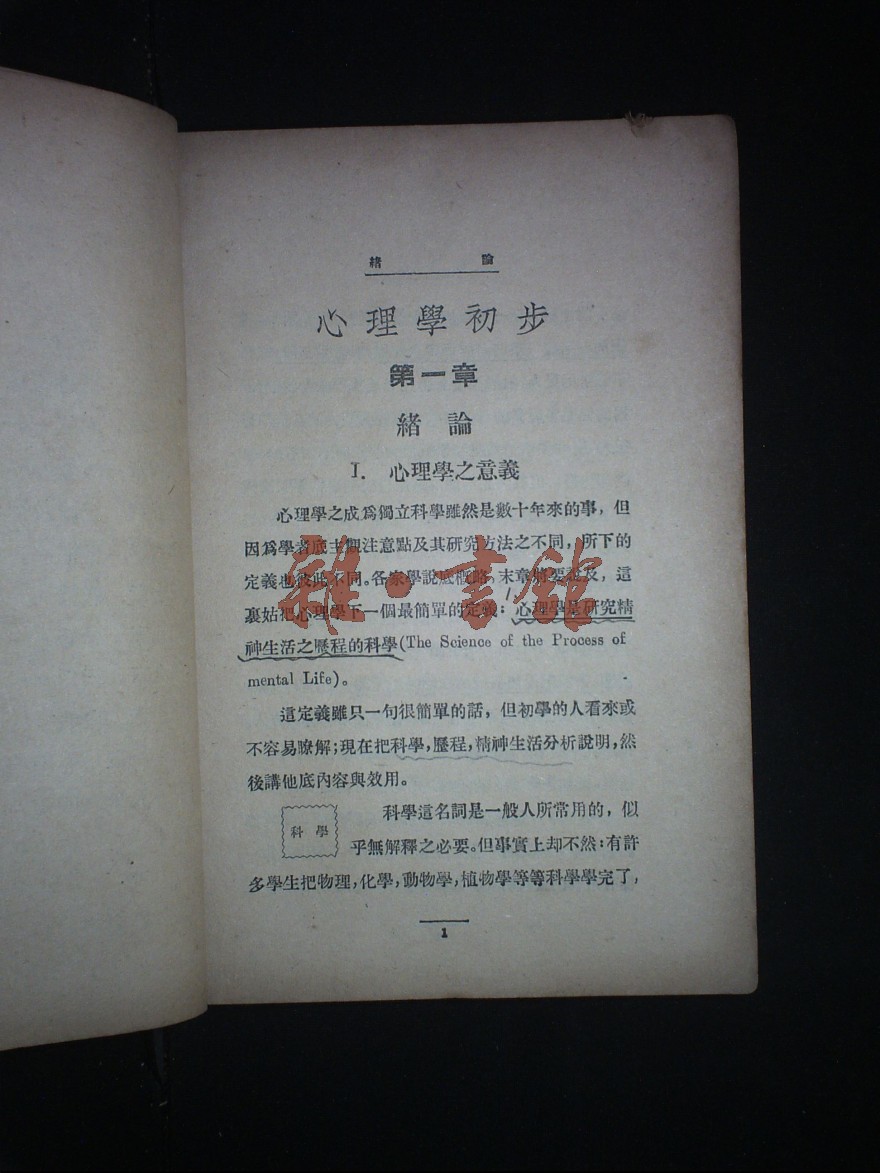 緒 論
心理學初步
第一章
緒論
I. 心理學之意義
心理學之成爲獨立科學雖然是數十年來的事，但
因爲學者底主觀注意點及其研究方法之不同，所下的
定義也彼此不同。各家學說底概略，末章將要說及，這
裏姑把心理學下一個最簡單的定義：心理學是研究精
神生活之歷程的科學(The Science of the Process of
mental Life)。
這定義雖只一句很簡單的話，但初學的人看來或
不容易瞭解；現在把科學，歷程，精神生活分析說明，然
後講他底內容與效用。
科學
科學這名詞是一般人所常用的，似
乎無解釋之必要。但事實上却不然：有許
多學生把物理，化學，動物學，植物學等等科學學完了，
1
雜·書館